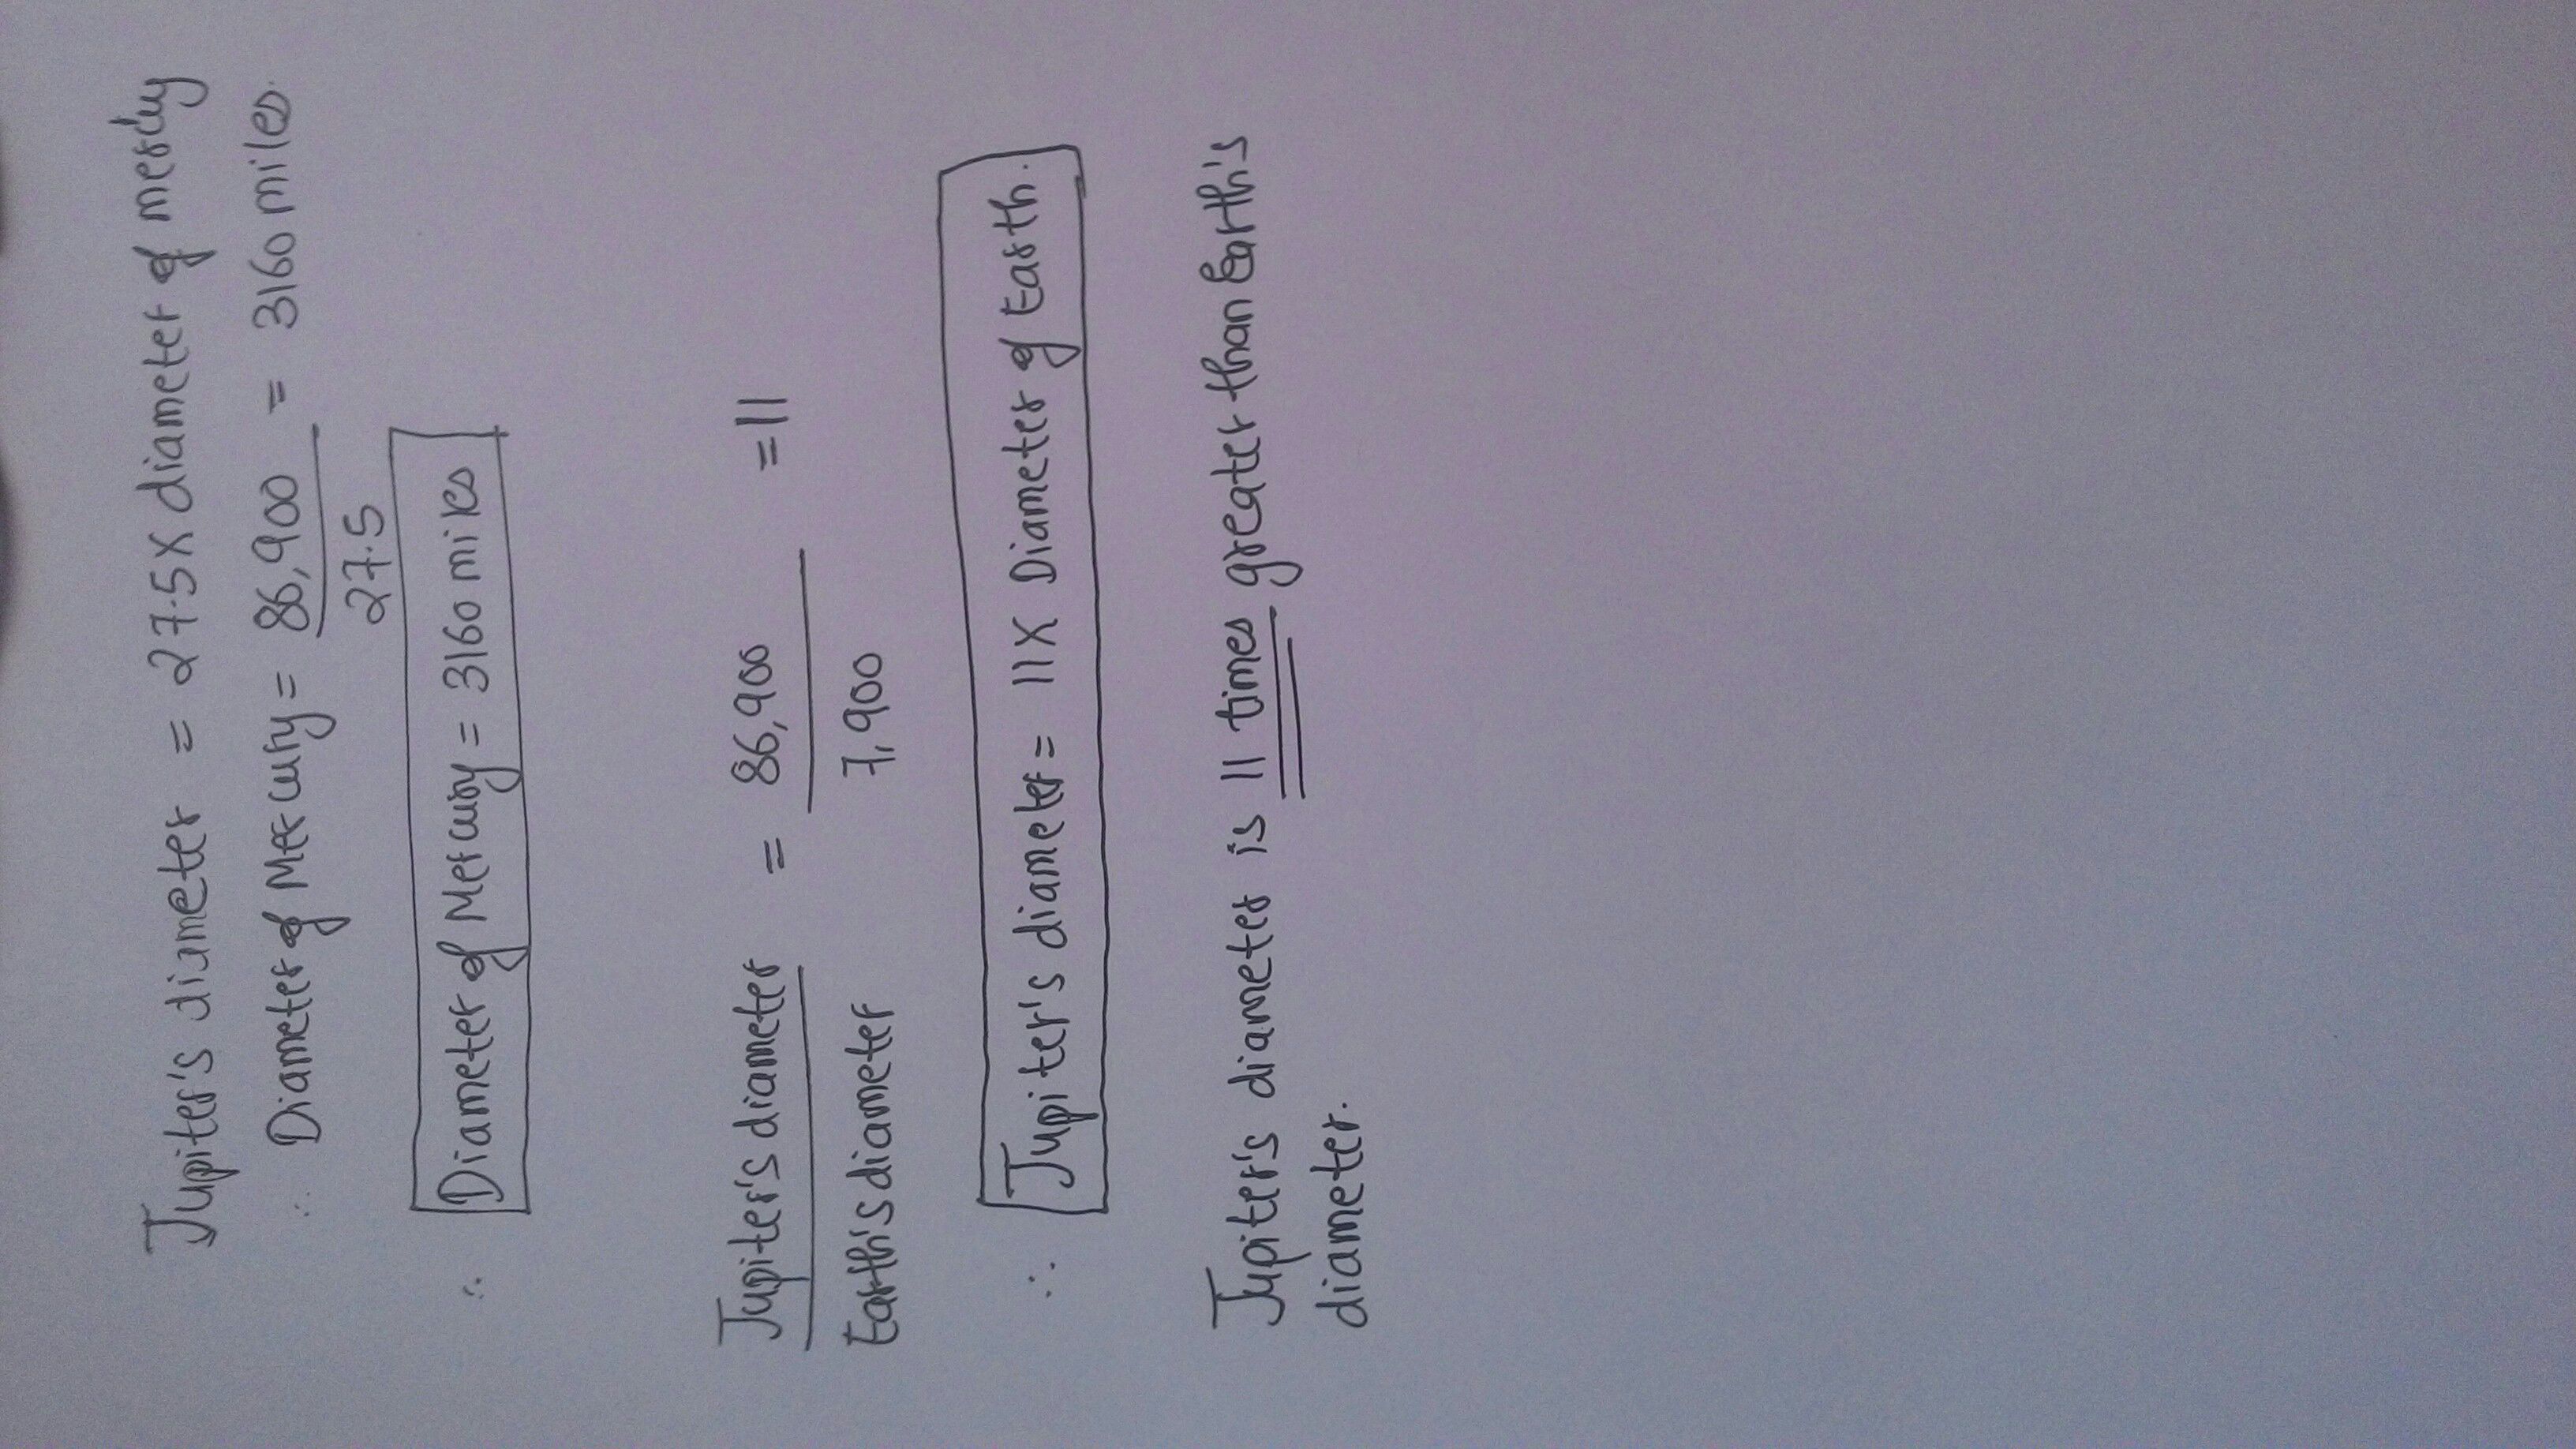 Jupiter's diameter = 27.5 X diameter of mercury
∴ Diameter of Mercury = 86,900 = 3160 miles.
27.5
∴ Diameter of Mercury = 3160 miles
Jupiter's diameter = 86,900 = 11
Earth's diameter 7,900
∴ Jupiter's diameter = 11 X Diameter of Earth.
Jupiter's diameter is 11 times greater than Earth's
diameter.